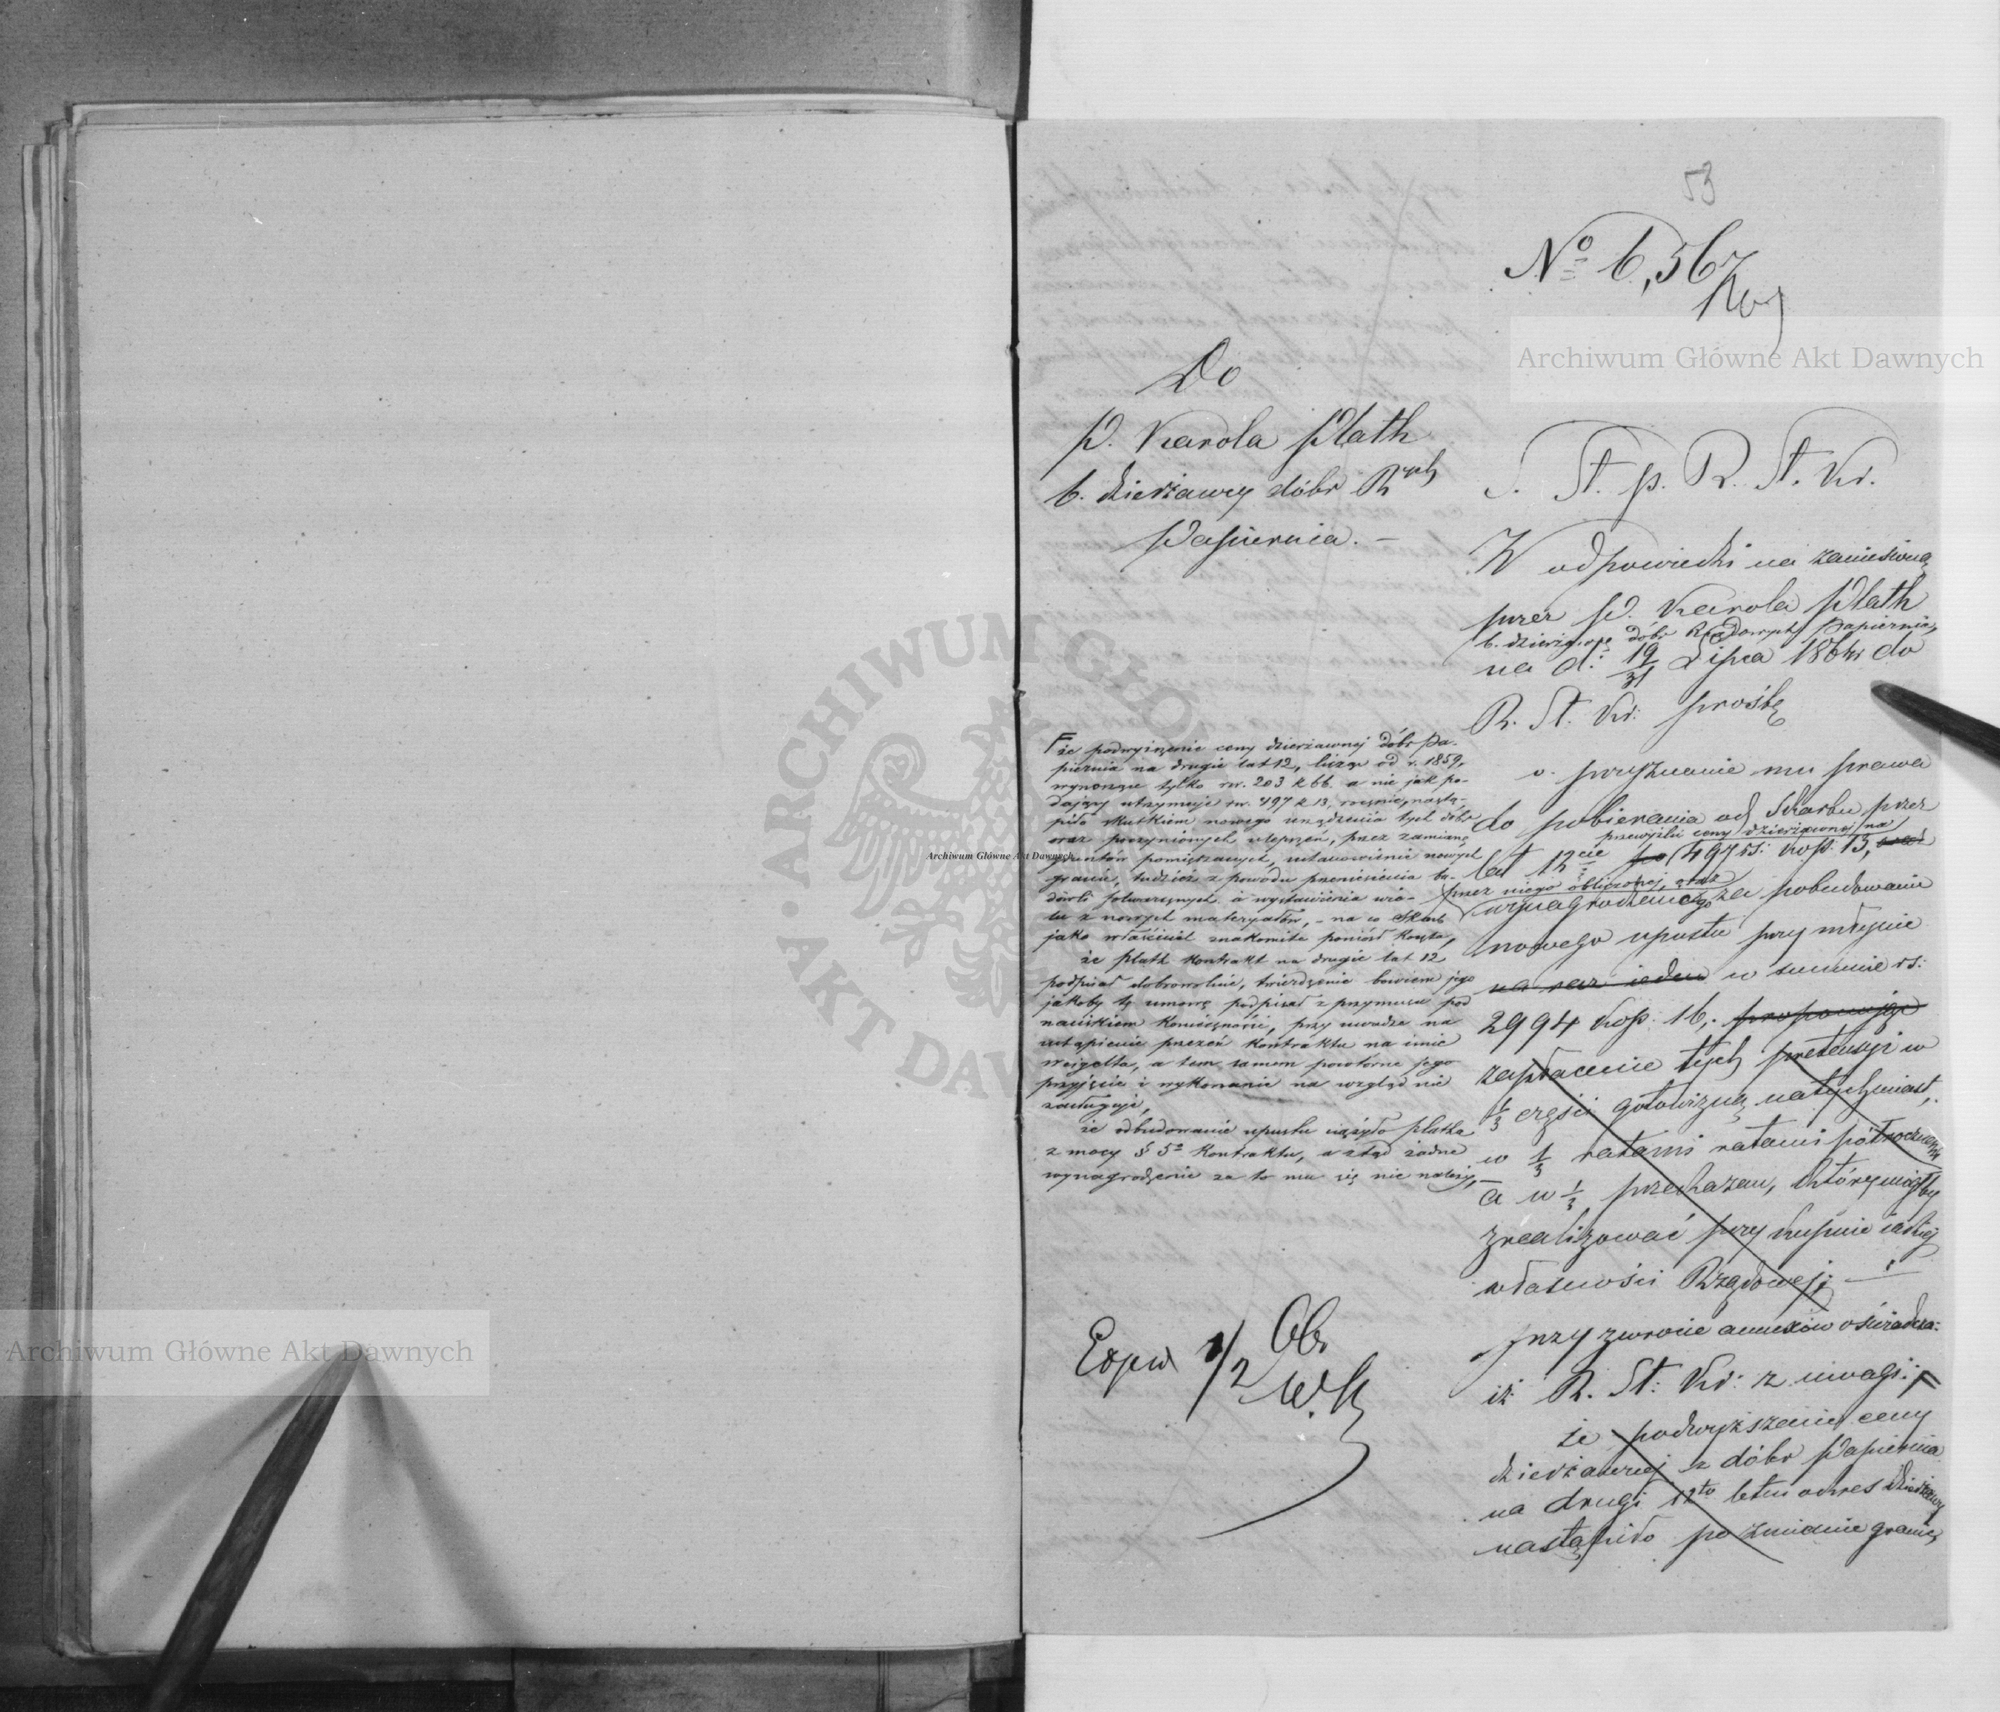 53
Nº 6,567
Do
P. Karola Plath
b. dzierżawcy dóbr Rych
Papiernia. —
S. St. p. R. St. Kr.
W odpowiedzi na zaniesioną
przez P. Karola Plath
b. dzierżawcę dóbr Rządowych Papiernia,
na d: 19/31 Lipca 1864 r. do
R. St. Kr: prośbę
o przyznanie mu prawa
do pobierania od Skarbu przez
przewyżki ceny dzierżawnej na
lat 12cie po 497 rs: kop: 13,
przez niego obliczonej, oraz
wynagrodzenia za pobudowanie
nowego upustu przy młynie
na raz jeden w summie rs:
2994 kop. 16, proponując
zapłacenie tych pretensyi w
1/3 części gotowizną natychmiast,
w 1/3 ratami ratami półrocznemi
a w 1/3 przekazem, który mógłby
zrealizować przy kupnie jakiej
własności Rządowej; —
przy zwrocie annexów oświadcza:
iż R. St: Kr: z uwagi: F
że podwyższenie ceny
dzierżawnej z dóbr Papiernia
na drugi 12to letni okres dzierżawy
nastąpiło po zmianie granic,
F że podwyższenie ceny dzierżawnej dóbr Pa-
piernia na drugie lat 12, licząc od r. 1859,
wynoszące tylko rs. 203 k 66. a nie jak po-
dający utrzymuje rs. 497 k 13, rocznie, nastą-
piło skutkiem nowego urządzenia tych dóbr
oraz poczynionych ulepszeń, przez zamianę
gruntów pomięszanych, ustanowienie nowych
granic, tudzież z powodu przeniesienia bu-
dowli folwarcznych, a wystawienia wie-
lu z nowych materyałów, – na co Skarb
jako właściciel znakomite poniósł koszta,
że Plath kontrakt na drugie lat 12
podpisał dobrowolnie, twierdzenie bowiem jego
jakoby tę umowę podpisał z przymusu pod
naciskiem konieczności, przy uwadze na
ustąpienie przezeń kontraktu na imie
Weigelta, a tem samem powtórne jego
przyjęcie i wykonanie na wzgląd nie
zasługuje,
że odbudowanie upustu ciążyło Platha
z mocy § 5º kontraktu, a ztąd żadne
wynagrodzenie za to mu się nie należy, —
Exped 1/2
Archiwum Główne Akt Dawnych
Archiwum Główne Akt Dawnych
Archiwum Główne Akt Dawnych